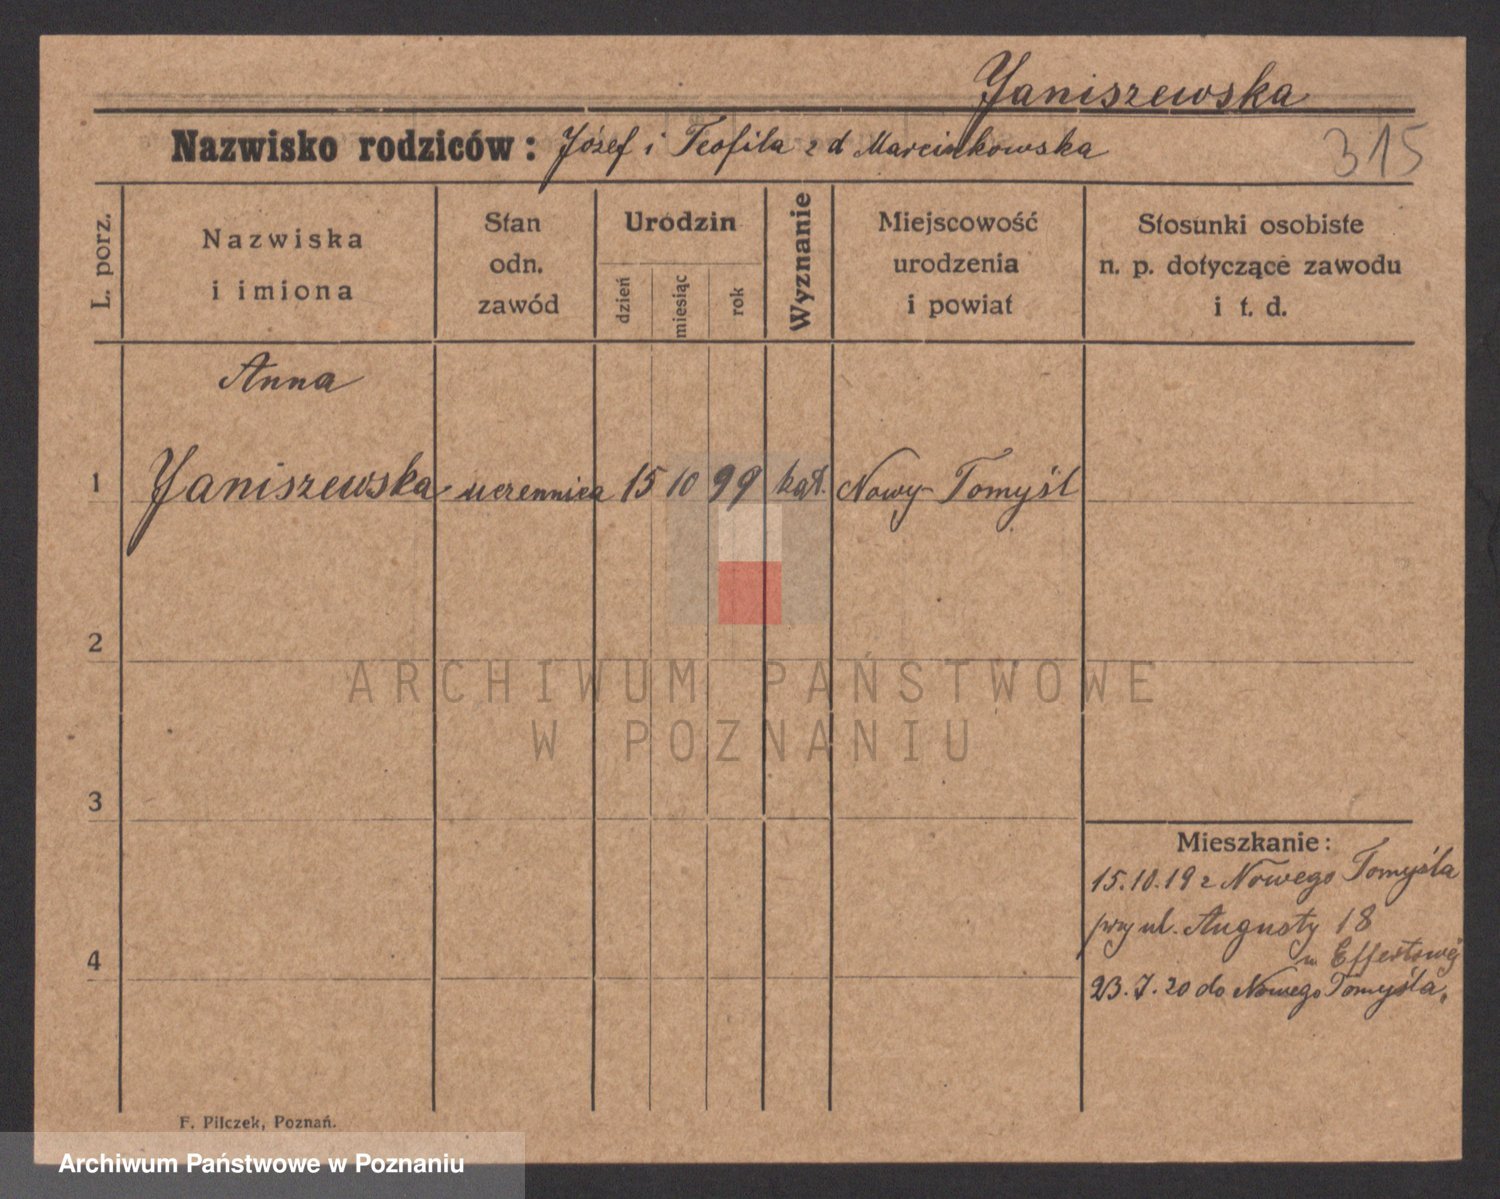 Janiszewska
Nazwisko rodziców: Józef i Teofila z d Marcinkowska
315
L. porz.
Nazwiska
i imiona
Stan
odn.
zawód
Urodzin
dzień
miesiąc
rok
Wyznanie
Miejscowość
urodzenia
i powiat
Stosunki osobiste
n. p. dotyczące zawodu
i t. d.
Anna
1 Janiszewska uczennica 15 10 99 kat. Nowy-Tomyśl
2
ARCHIWUM PAŃSTWOWE
W POZNANIU
3
Mieszkanie:
15.10.19 z Nowego Tomyśla
przy ul. Augusty 18
u Effertowej
4
23.7.20 do Nowego Tomyśla,
F. Pilczek, Poznań.
Archiwum Państwowe w Poznaniu